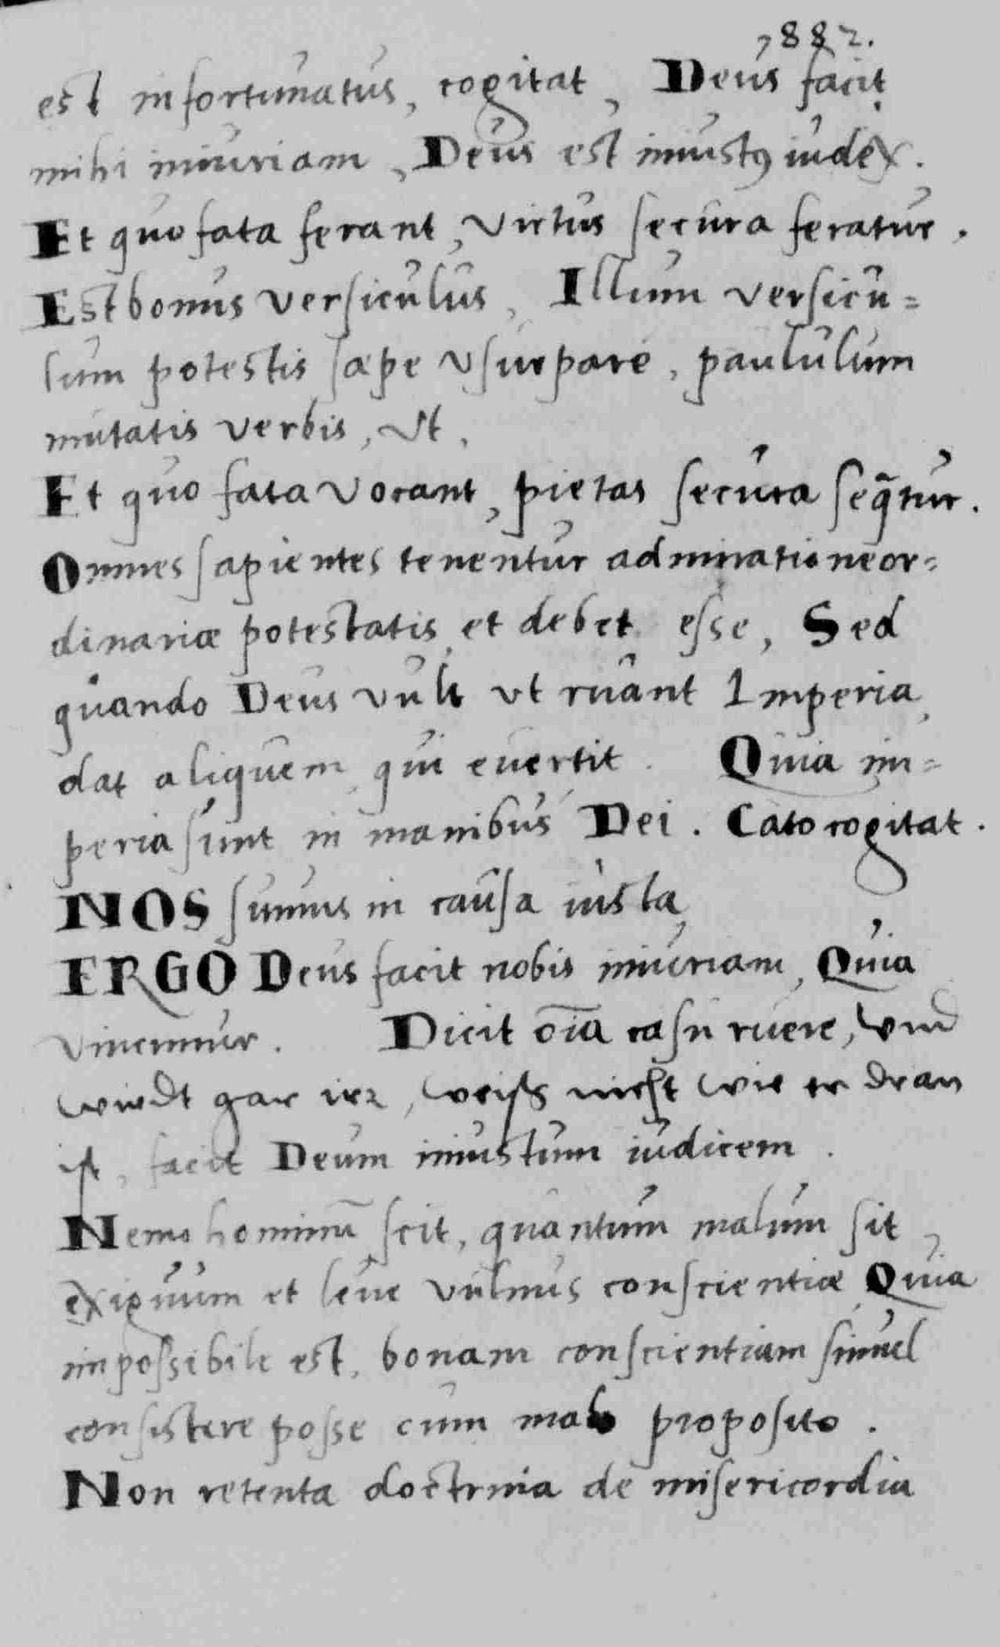 7882.
est infortunatus, cogitat, Deus facit
mihi iniuriam, Deus est iniustꝰ iudex.
Et quo fata ferant, virtus secura feratur.
Est bonus versiculus, Illum versicu=
lum potestis sæpe usurpare, paululum
mutatis verbis, ut,
Et quo fata vocant, pietas secura seq̃tur.
Omnes sapientes tenentur admiratione or=
dinariæ potestatis, et debet esse, Sed
quando Deus vult ut ruant Imperia,
dat aliquem, qui evertit. Quia im=
peria sunt in manibus Dei. Cato cogitat.
NOS sumus in causa iusta,
ERGO Deus facit nobis iniuriam, Quia
vincimur. Dicit oīa casu ruere, Und
wirdt gar irr, weiß nicht wie er dran
ist, facit Deum iniustum iudicem.
Nemo hominū scit, quantum malum sit,
exiguum et leve vulnus conscientiæ Quia
impossibile est, bonam conscientiam simul
consistere posse cum malo proposito.
Non retenta doctrina de misericordia